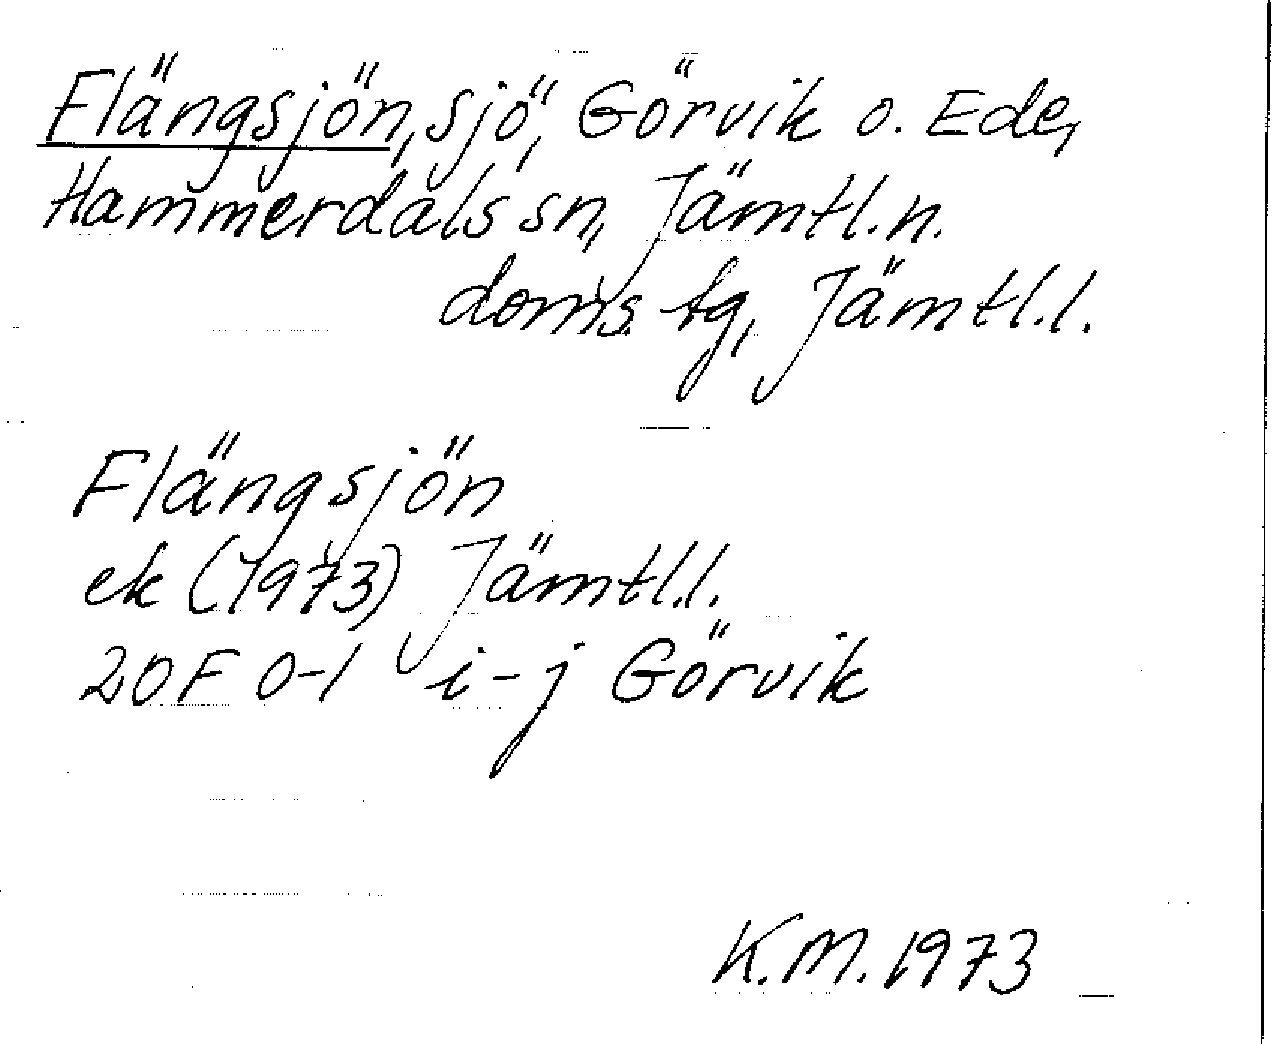 Flängsjön, sjö, Görvik o. Ede,
Hammerdals sn, Jämtl. n.
doms. tg, Jämtl. l.
Flängsjön
ek (1973) Jämtl.l.
20F 0-1 i-j Görvik
K.M. 1973